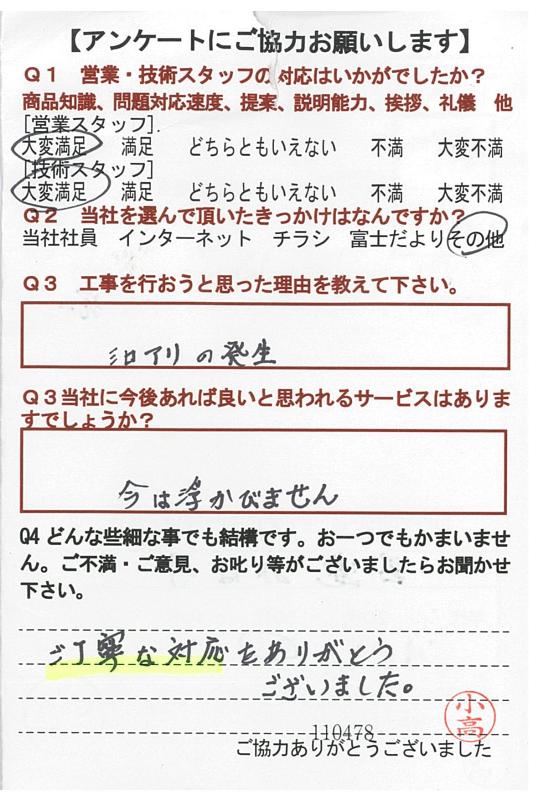 【アンケートにご協力お願いします】
Q1 営業・技術スタッフの対応はいかがでしたか？
商品知識、問題対応速度、提案、説明能力、挨拶、礼儀　他
[営業スタッフ].
大変満足　満足　どちらともいえない　不満　大変不満
[技術スタッフ]
大変満足　満足　どちらともいえない　不満　大変不満
Q2 当社を選んで頂いたきっかけはなんですか？
当社社員　インターネット　チラシ　富士だより　その他
Q3 工事を行おうと思った理由を教えて下さい。
シロアリの発生
Q3当社に今後あれば良いと思われるサービスはありま
すでしょうか？
今は浮かびません
Q4 どんな些細な事でも結構です。お一つでもかまいませ
ん。ご不満・ご意見、お叱り等がございましたらお聞かせ
下さい。
ご丁寧な対応をありがとう
ございました。
小高
110478
ご協力ありがとうございました